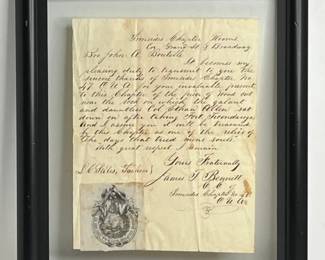 Chapter Rooms
Cor Grand St & Broadway
Bro John A.
It becomes my
pleasing duty to transmit to you the
sincere thanks of Chapter No
47 O U A for your invaluable present
to this Chapter of the piece of wood cut
near the rock on which the galant
and dauntless Col Ethan Allen sat
down on after taking Fort Ticonderoga
And I assure you it will be treasured
by this Chapter as one of the relics of
The days that tried mens souls.
With great respect I remain
Yours Fraternally
James T. Bennett
Chapter No 47
O.U.A.